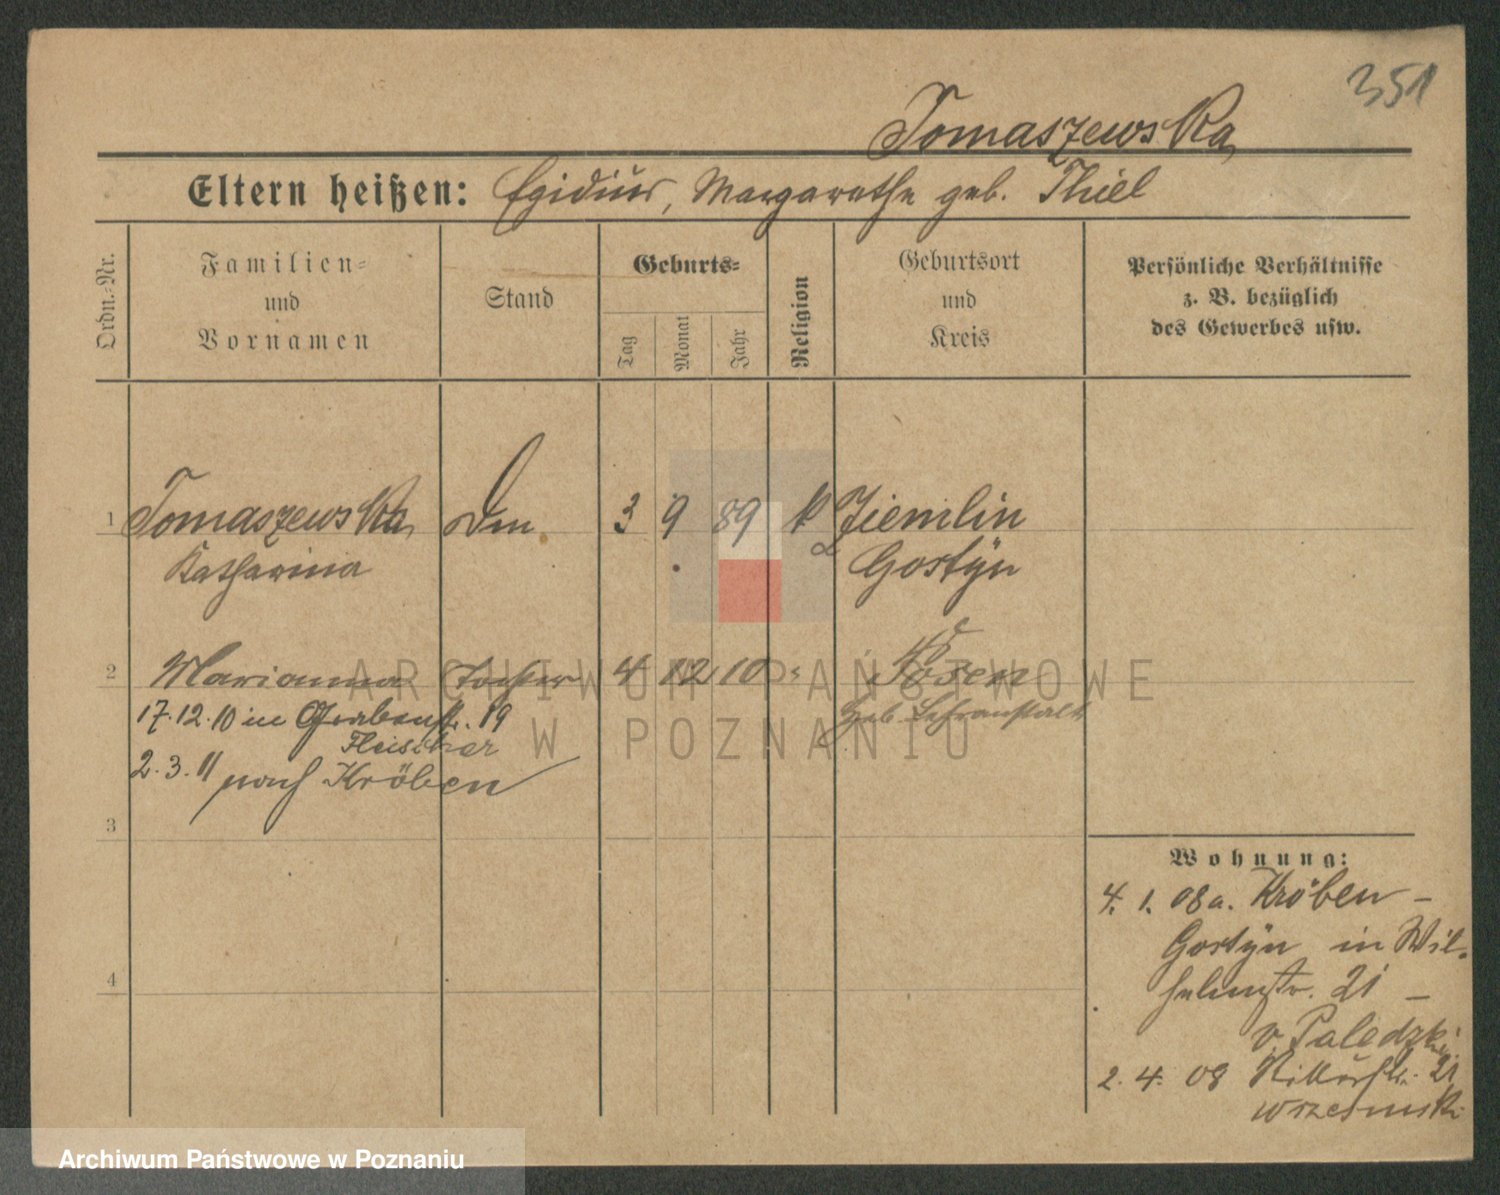 351
Tomaszewska
Eltern heißen: Egidius, Margarethe geb. Thiel
Ordn.-Nr.
Familien- und Vornamen
Stand
Geburts-
Tag
Monat
Jahr
Religion
Geburtsort und Kreis
Persönliche Verhältnisse
z. B. bezüglich
des Gewerbes usw.
1 Tomaszewska Dm 3 9 89 k Ziemlin
Katharina Gostyn
2 Marianna Tochter 4 12 10 Posen
17.12.10 in Grabenstr. 19 Geb. Lehranstalt
Fleischer
2.3.11 nach Kröben
3
4
Wohnung:
4. 1. 08 a. Kröben -
Gostyn in Wil-
helmstr. 21 -
v. Paledzki
2. 4. 08 Ritterstr. 21
ARCHIWUM PAŃSTWOWE
W POZNANIU
Archiwum Państwowe w Poznaniu